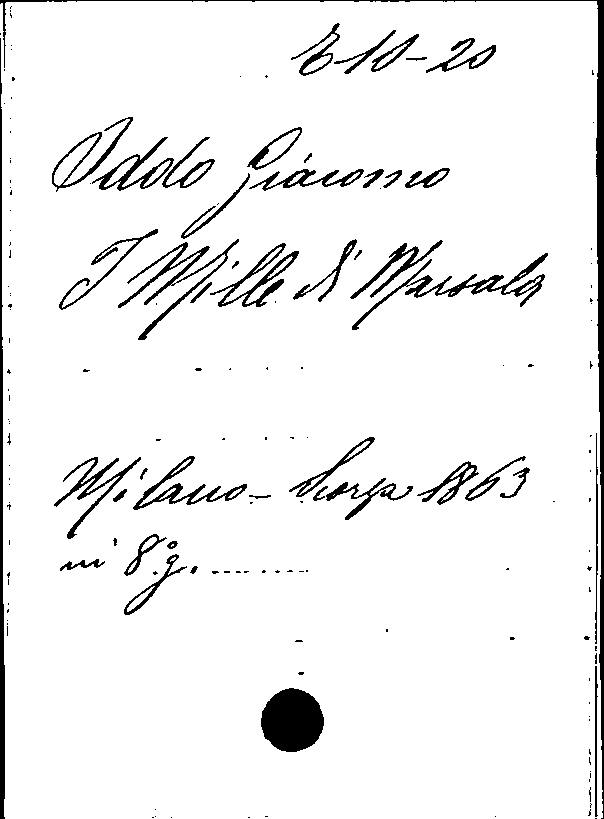 E 10-20
Oddo Giacomo
I Mille di Marsala
Milano - 1863
in 8° g.